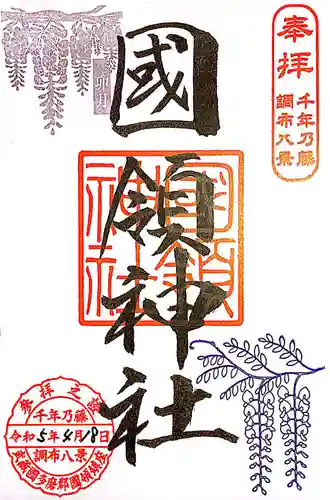 奉拝
千年乃藤
調布八景
國領神社
國領神社
参拝之證
千年乃藤
令和5年4月18日
調布八景
武蔵國多磨郡國領鎮座
卯月